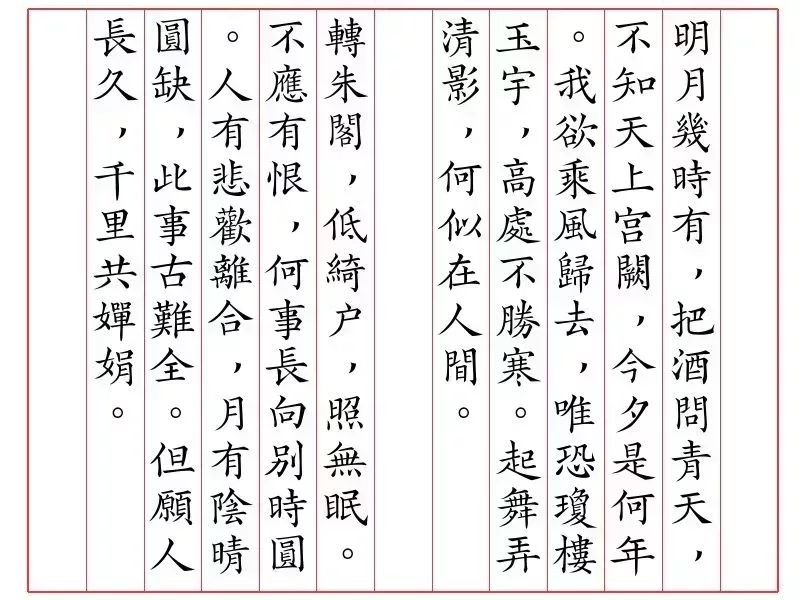 明月幾時有，把酒問青天，
不知天上宫闕，今夕是何年
。我欲乘風歸去，唯恐瓊樓
玉宇，高處不勝寒。起舞弄
清影，何似在人間。
轉朱閣，低綺户，照無眠。
不應有恨，何事長向别時圓
。人有悲歡離合，月有陰晴
圓缺，此事古難全。但願人
長久，千里共嬋娟。